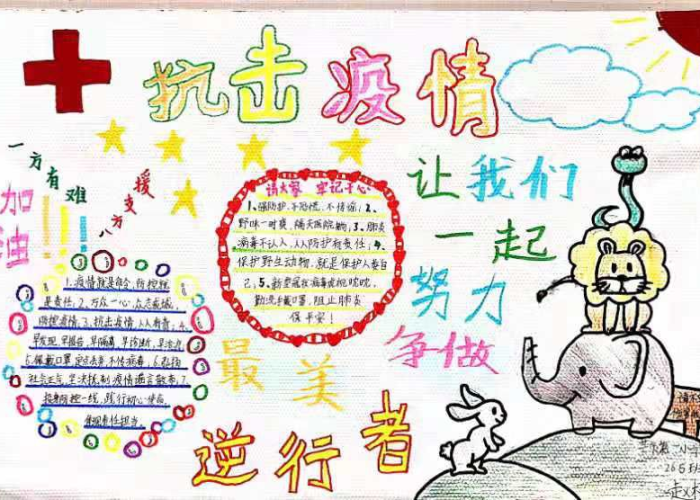 抗击疫情
一方有难
八方支援
加油!!!
让我们
一起
努力
争做
最美
逆行者
请大家 牢记于心
1、强防护,不恐慌,不信谣;2、
野味一时爽,隔天医院躺;3、肺炎
病毒不认人,人人防护有责任;4、
保护野生动物,就是保护人类自
己;5、
勤洗手戴口罩,阻止肺炎
保平安!
1、疫情就是命令,防控就
是责任;2、万众一心,众志成城,
防控疫情;3、抗击疫情,人人有责;4、
早发现,早报告,早隔离,早诊断,早治疗;
5、佩戴口罩
社会正气,坚决抵制疫情谣言散布;7、
践行初心使命,
体现责任担当。